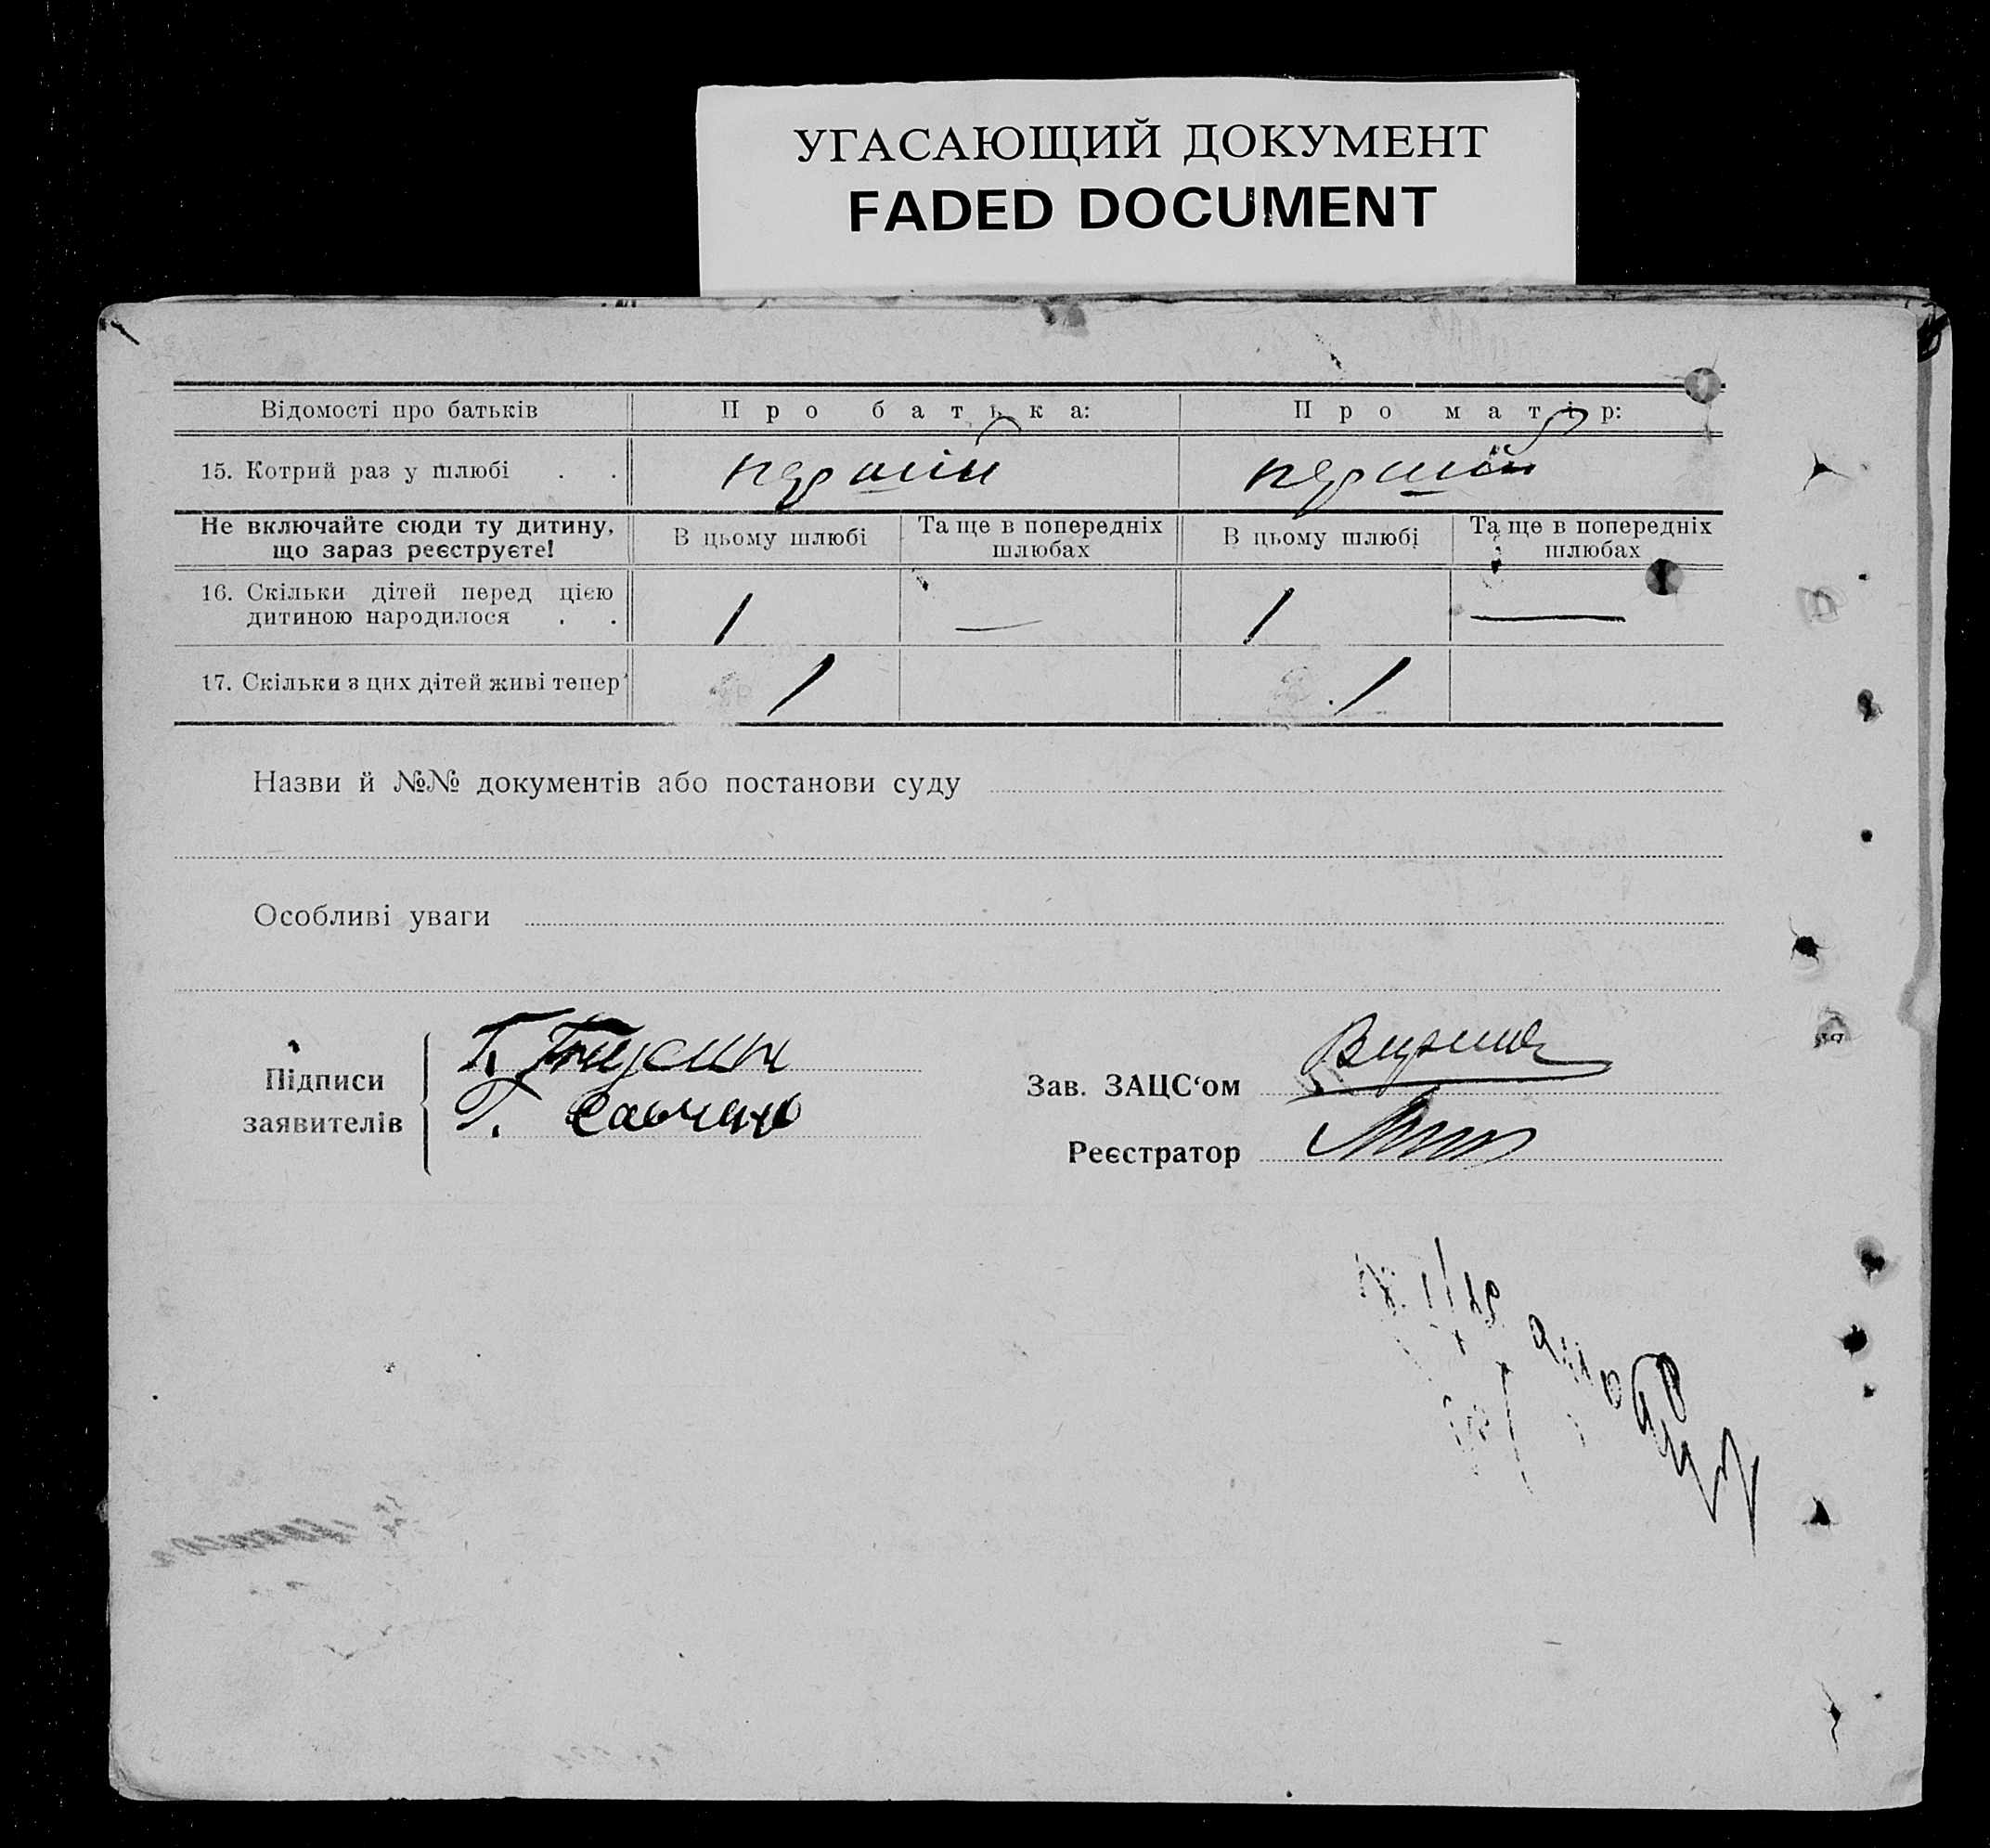 УГАСАЮЩИЙ ДОКУМЕНТ
FADED DOCUMENT
Відомості про батьків Про батька: Про матір:
15. Котрий раз у шлюбі . . перший перший
Не включайте сюди ту дитину, що зараз реєструєте! В цьому шлюбі Та ще в попередніх шлюбах В цьому шлюбі Та ще в попередніх шлюбах
16. Скільки дітей перед цією дитиною народилося . . 1 — 1 —
17. Скільки з цих дітей живі тепер 1 1
Назви й №№ документів або постанови суду
Особливі уваги
Підписи заявителів
Г.
Г.
Зав. ЗАЦС‘ом
Реєстратор